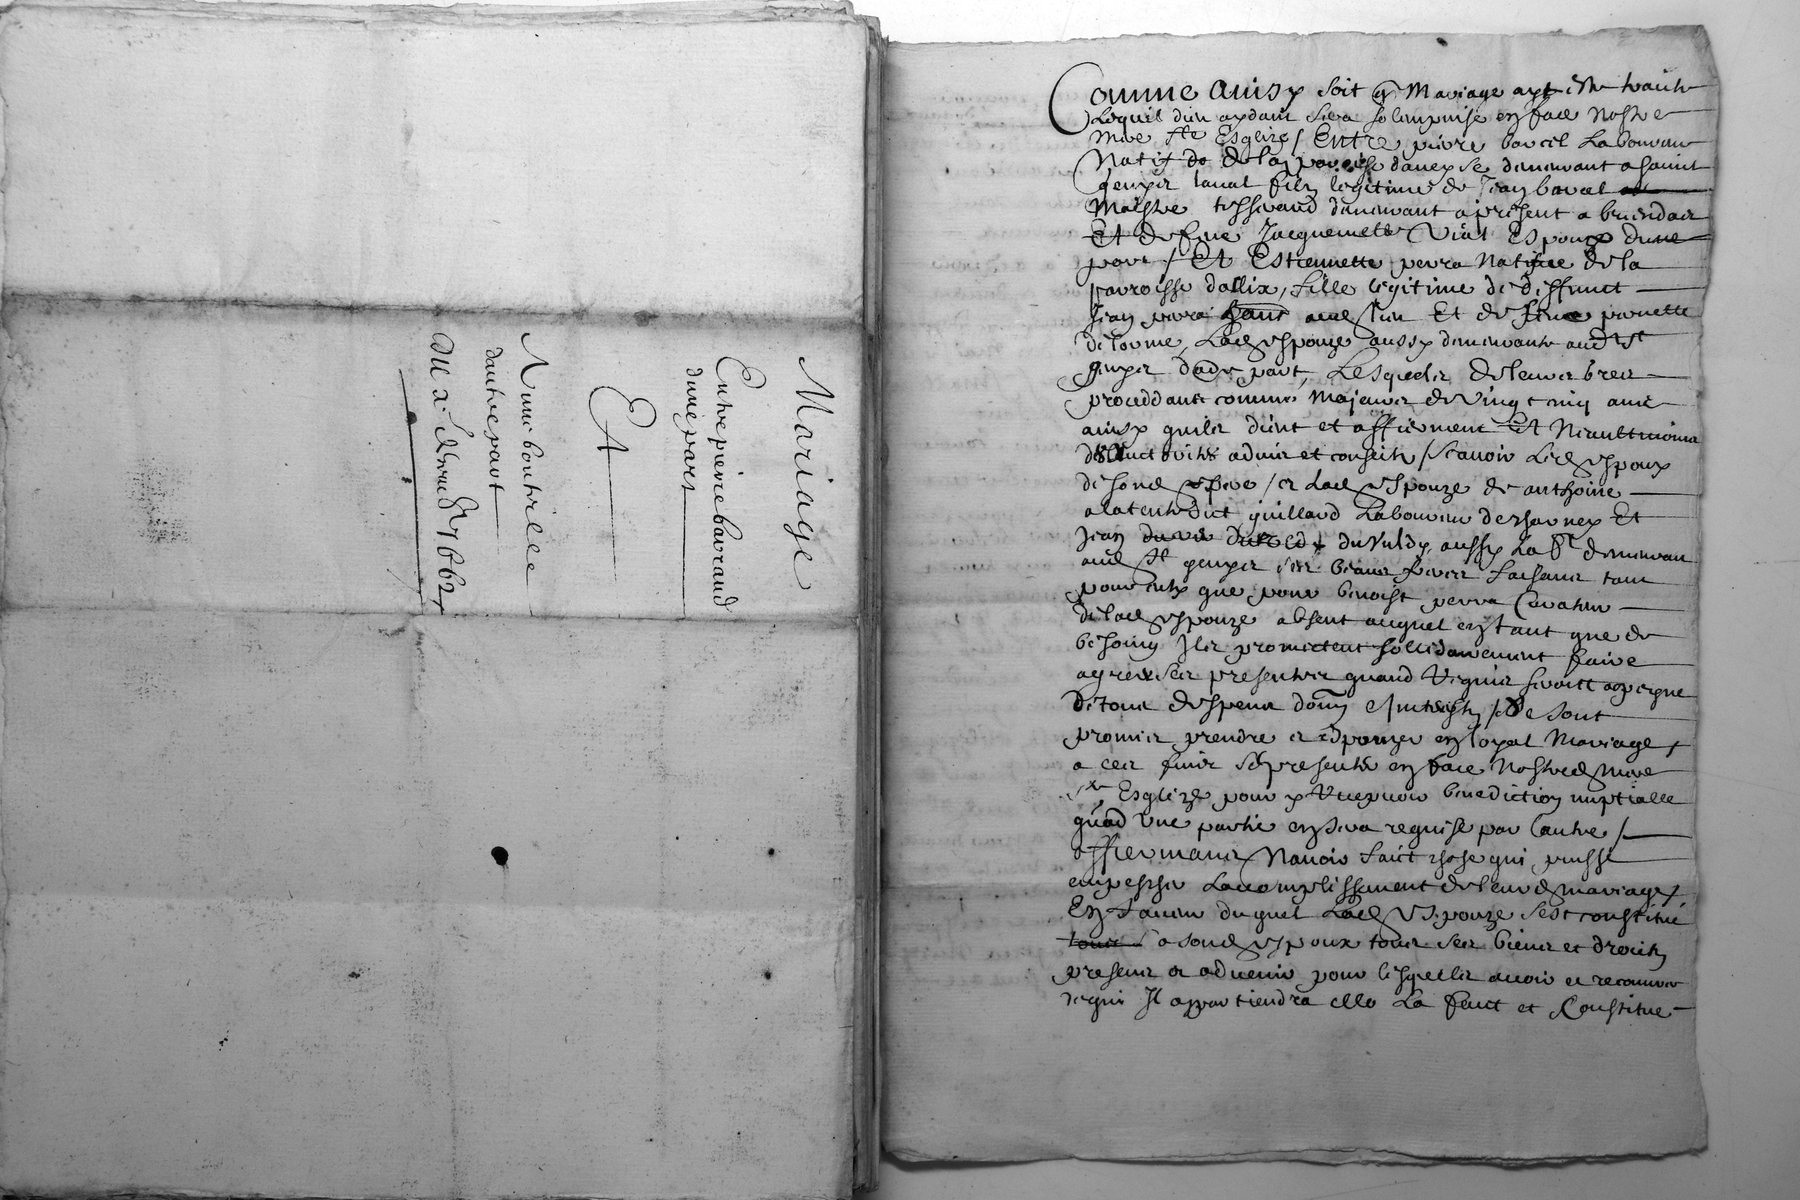 Mariage
Entre pierre barraud
dune part
Et
Numi bonture
dautre part
du x.e 1662
Comme Ainsy soit q Mariage ayt este traicte
Lequel dieu aydant sera solempnise en face nostre
mere ste Esglize / Entre pierre borcel Laboureur
Natif de de la parroisse daveyse demeurant a sainct
genyer laval filz legitime de Jean borcel
Maistre tisserand demeurant a present a brindas
Et de feue Jacquemette Vial Espoux dune
part / Et Estiennette perra Natifve de la
parroisse dallix, fille legitime de deffunct
Jean perra aud lieu Et de feue pernette
delorme, Lad espouze aussy demeurante aud st
genyer dautre part, Lesquelz de leurs grez
proceddantz comme Majeurs de Vingt cinq ans
ainsy quilz dient et affierment Et Neantmoins
de lauctorite advis et conseilz / scavoir Led espoux
de sond pere / et Lad espouze de anthoine
a la tente dict guillard Laboureur de charnex Et
Jean duvuldy, aussy La demeurant
aud st genyer ses beaux freres faisans tant
pour eulx que pour benoist perra Curateur
de lad espouze absent auquel en tant que de
besoing Ilz promettent sollidairement faire
agreer ses presentes quand Requis seront a peyne
de tous despens dom interestz / Se sont
promis prendre et espouzer en loyal Mariage,
a ces fins se presenter en face Nostred mere
ste Esglize pour y Recepvoir benediction nuptialle
quand Une partie en sera requise par lautre /
affiermans Navoir faict chose qui puisse
empescher Laccomplissement de leurd mariage,
En faveur duquel Lad Espouze sest constitué
a sond espoux tous ses biens et droictz
presens et advenir pour lesquelz avoir et recouvrer
de qui Il appartiendra elle La faict et Constitue